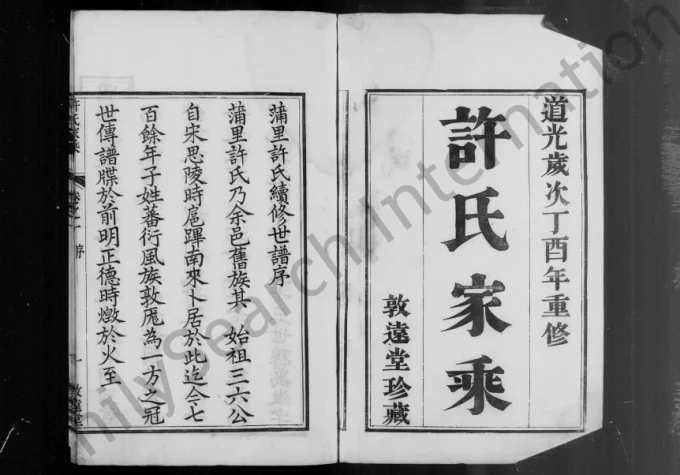 道光歲次丁酉年重修
許氏家乘
敦遠堂珍藏
蒲里許氏續修世譜序
蒲里許氏乃余邑舊族其 始祖三六公
自宋思陵時扈蹕南來卜居於此迄今七
百餘年子姓蕃衍風族敦厖為一方之冠
世傳譜牒於前明正德時燬於火至
許氏家乘 卷之一 序 一 敦遠堂
FamilySearch International